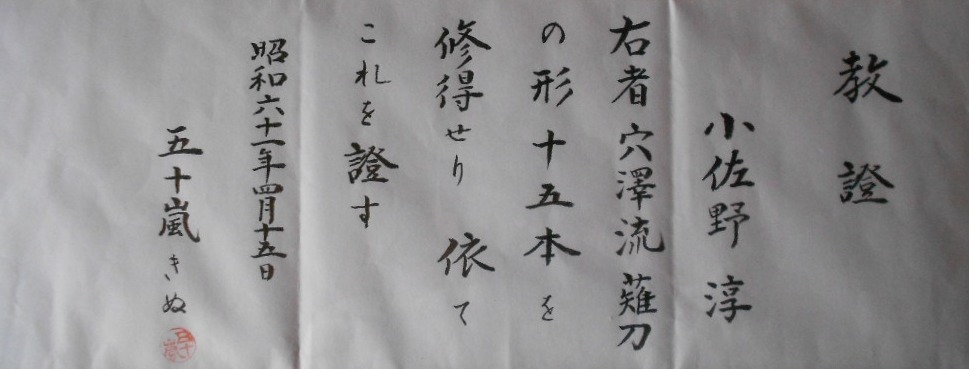 教證
小佐野淳
右者穴澤流薙刀
の形十五本を
修得せり 依て
これを證す
昭和六十一年四月十五日
五十嵐きぬ
五十嵐